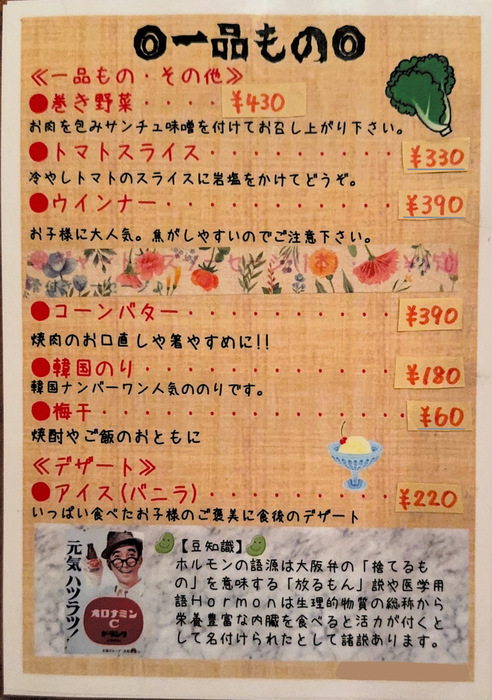 ◎一品もの◎
≪一品もの・その他≫
●巻き野菜・・・・¥430
お肉を包みサンチュ味噌を付けてお召し上がり下さい。
●トマトスライス・・・・・・・・・・¥330
冷やしトマトのスライスに岩塩をかけてどうぞ。
●ウインナー・・・・・・・・・・・¥390
お子様に大人気。焦がしやすいのでご注意下さい。
●コーンバター・・・・・・・・・・¥390
焼肉のお口直しや箸やすめに!!
●韓国のり・・・・・・・・・・・・¥180
韓国ナンバーワン人気ののりです。
●梅干・・・・・・・・・・・・・・¥60
焼酎やご飯のおともに
≪デザート≫
●アイス(バニラ)・・・・・・・・・¥220
いっぱい食べたお子様のご褒美に食後のデザート
元気ハツラツ!
オロナミン
C
ドリンク
【豆知識】
ホルモンの語源は大阪弁の「捨てるも
の」を意味する「放るもん」説や医学用
語Hormonは生理的物質の総称から
栄養豊富な内臓を食べると活力が付くと
して名付けられたとして諸説あります。